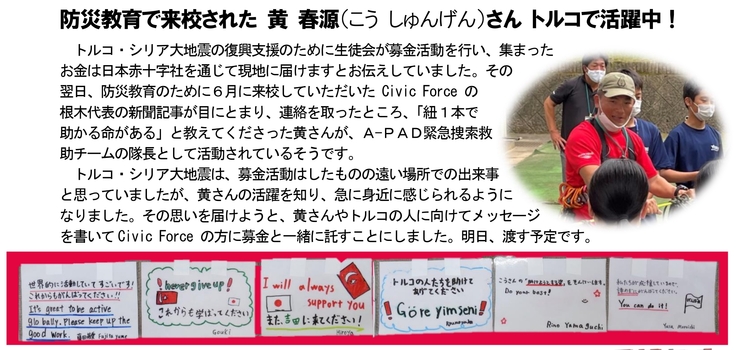 防災教育で来校された 黄 春源(こう しゅんげん)さん トルコで活躍中！
トルコ・シリア大地震の復興支援のために生徒会が募金活動を行い、集まった
お金は日本赤十字社を通じて現地に届けますとお伝えしていました。その
翌日、防災教育のために６月に来校していただいた Civic Force の
根木代表の新聞記事が目にとまり、連絡を取ったところ、「紐１本で
助かる命がある」と教えてくださった黄さんが、Ａ−ＰＡＤ緊急捜索救
助チームの隊長として活動されているそうです。
トルコ・シリア大地震は、募金活動はしたものの遠い場所での出来事
と思っていましたが、黄さんの活躍を知り、急に身近に感じられるように
なりました。その思いを届けようと、黄さんやトルコの人に向けてメッセージ
を書いて Civic Force の方に募金と一緒に託すことにしました。明日、渡す予定です。
世界的に活動していてすごいです!
これからもがんばってください!!
It's great to be active
globally. Please keep up the
good work.
never give up!
これからも学ばってください
I will always
support you
また、吉田に来てください!
トルコの人たちを助けて
あげてください
Göreyimseni!
Do your best!
Rino Yamaguchi
You can do it!